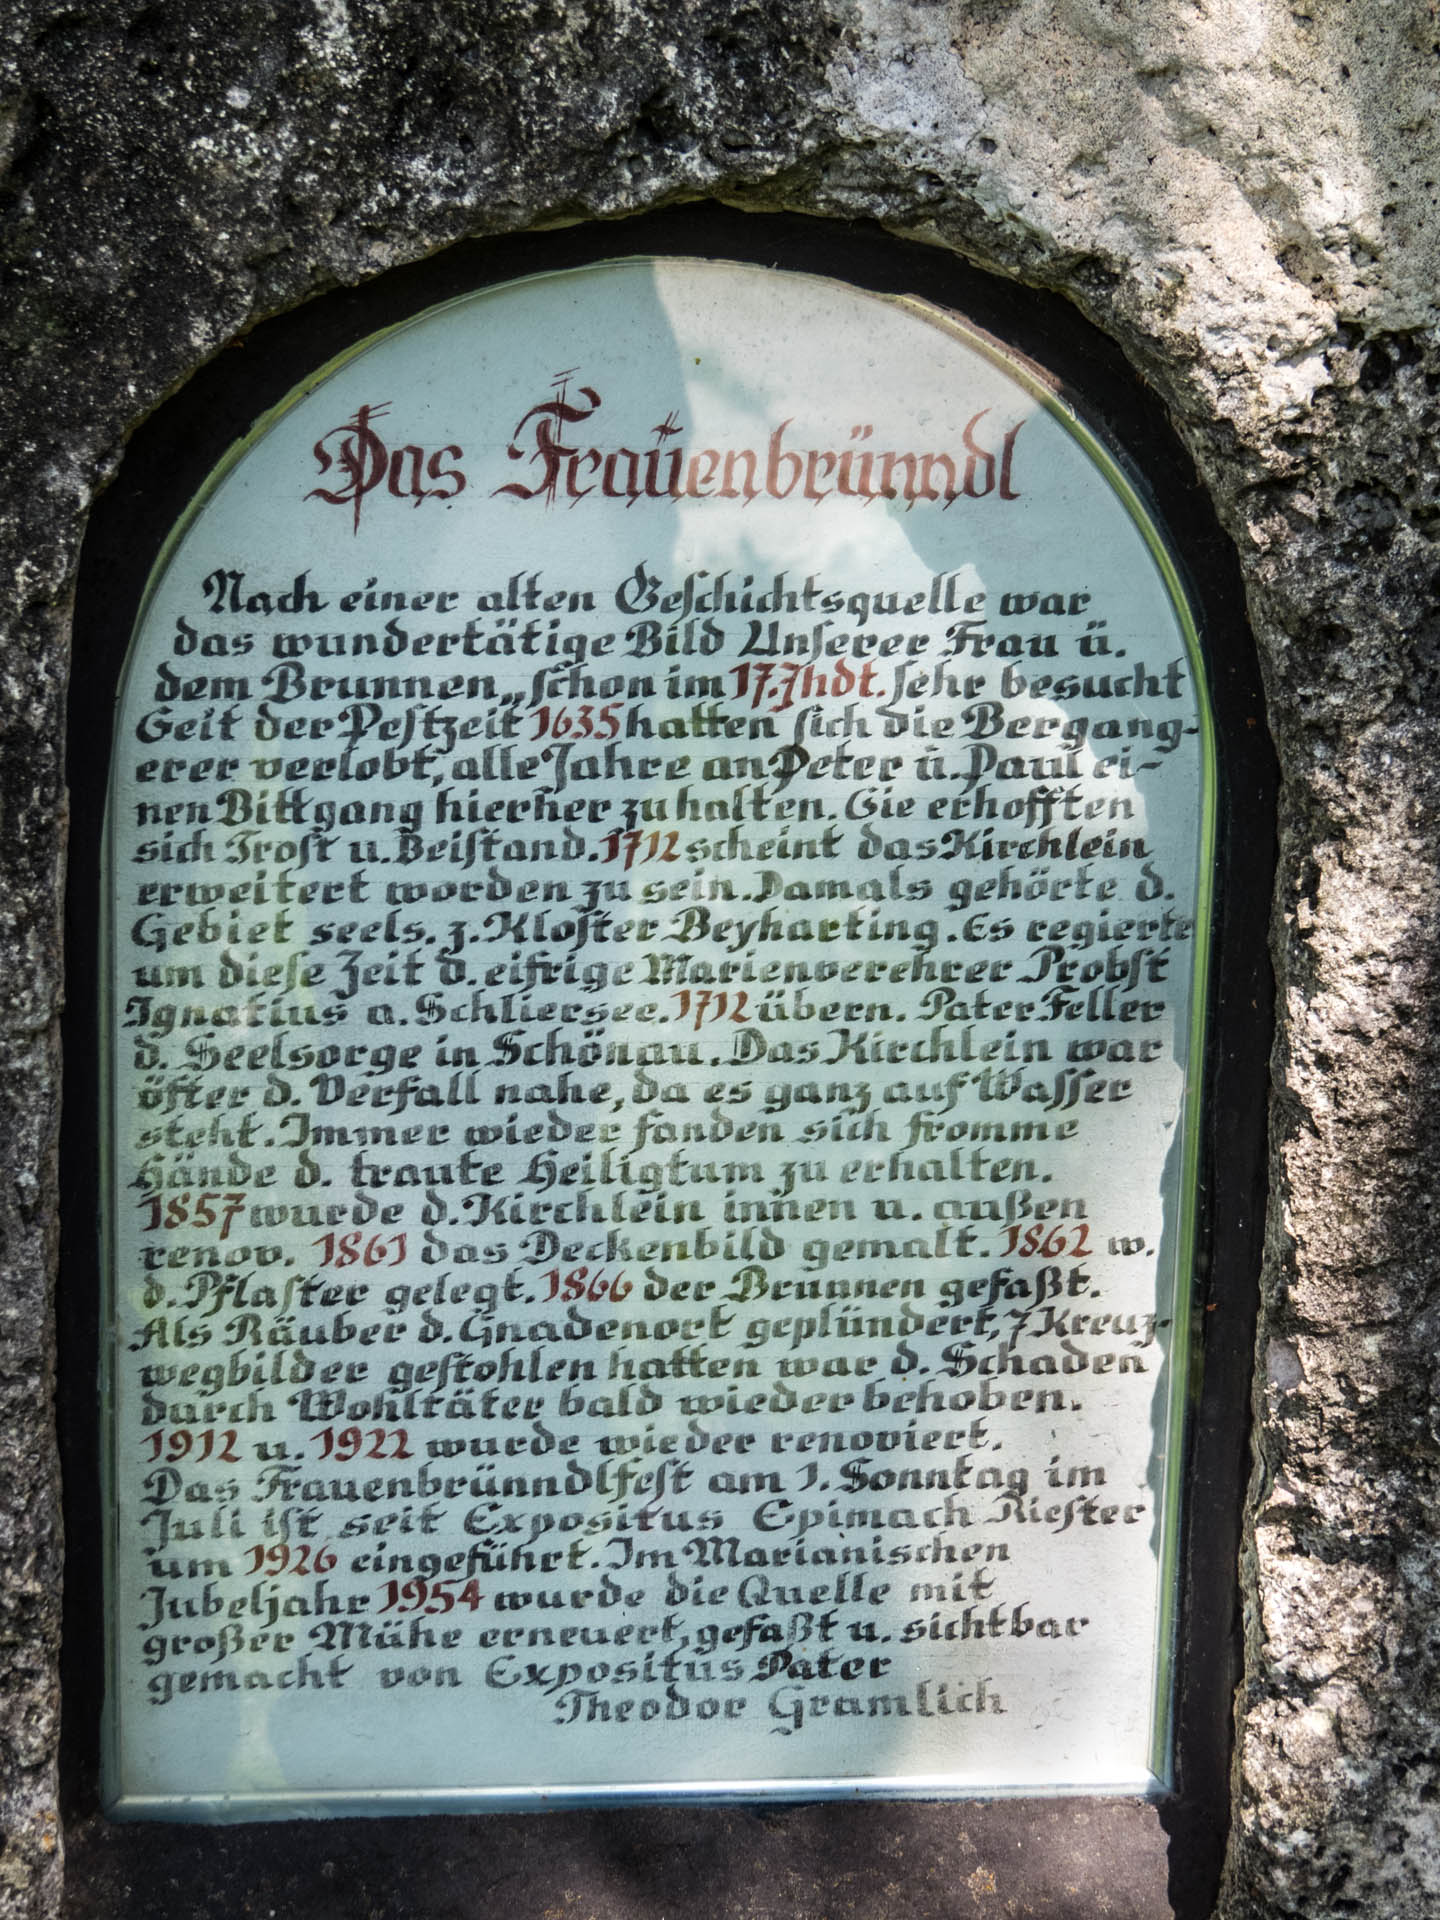 Das Frauenbrünndl
Nach einer alten Geschichtsquelle war
das wundertätige Bild Unserer Frau ü.
dem Brunnen „schon im 17. Jhdt. sehr besucht
Seit der Pestzeit 1635 hatten sich die Bergang-
erer verlobt, alle Jahre an Peter u. Paul ei-
nen Bittgang hierher zu halten. Sie erhofften
sich Trost u. Beistand. 1712 scheint das Kirchlein
erweitert worden zu sein. Damals gehörte d.
Gebiet seels. z. Kloster Beyharting. Es regierte
um diese Zeit d. eifrige Marienverehrer Probst
Ignatius a. Schliersee. 1712 übern. Pater Feller
d. Seelsorge in Schönau. Das Kirchlein war
öfter d. Verfall nahe, da es ganz auf Wasser
steht. Immer wieder fanden sich fromme
Hände d. traute Heiligtum zu erhalten.
1857 wurde d. Kirchlein innen u. außen
renov. 1861 das Deckenbild gemalt. 1862 w.
d. Pflaster gelegt. 1866 der Brunnen gefaßt.
Als Räuber d. Gnadenort geplündert, 7 Kreuz-
wegbilder gestohlen hatten war d. Schaden
durch Wohltäter bald wieder behoben.
1912 u. 1922 wurde wieder renoviert.
Das Frauenbrünndlfest am 1. Sonntag im
Juli ist seit Expositus Epimach Riester
um 1926 eingeführt. Im Marianischen
Jubeljahr 1954 wurde die Quelle mit
großer Mühe erneuert, gefaßt u. sichtbar
gemacht von Expositus Pater
Theodor Gramlich